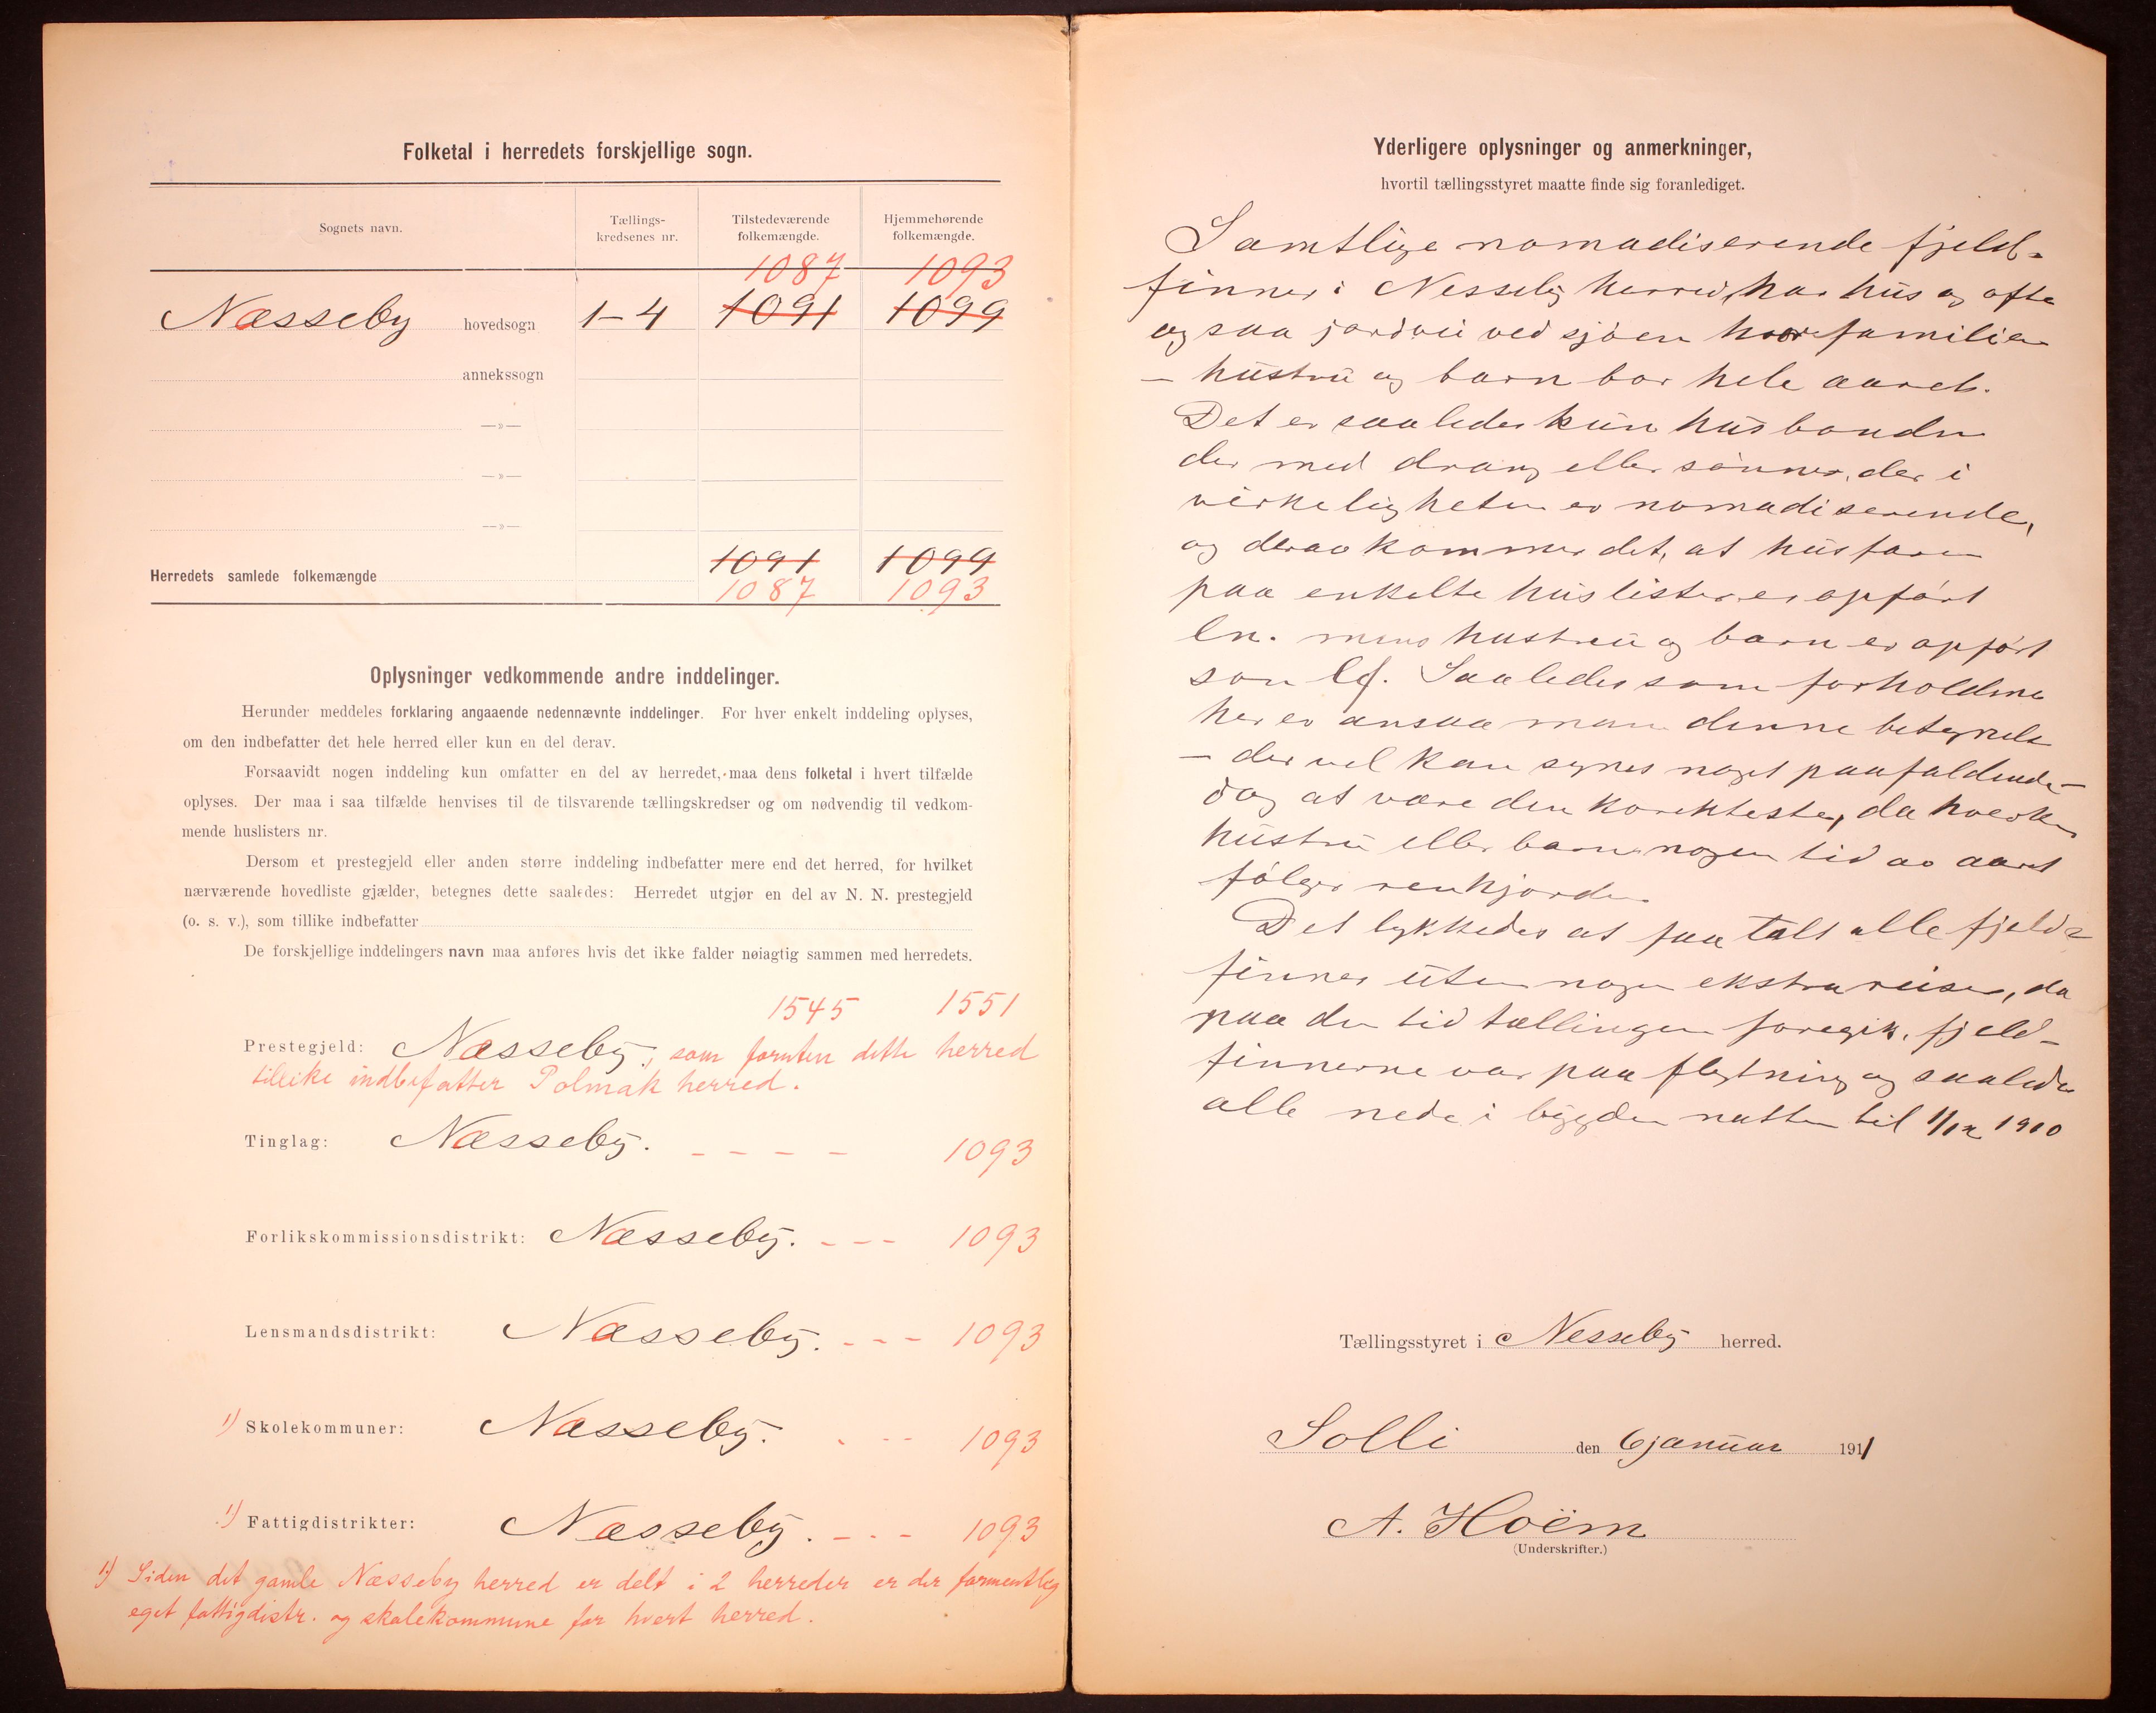 Folketal i herredets forskjellige sogn.
Sognets navn.
Tællings-
kredsenes nr.
Tilstedeværende
folkemængde.
Hjemmehørende
folkemængde.
1087 1093
Næsseby hovedsogn 1-4 1091 1099
annekssogn
—»—
—»—
—»—
1091 1099
Herredets samlede folkemængde
1087 1093
Oplysninger vedkommende andre inddelinger.
Herunder meddeles forklaring angaaende nedennævnte inddelinger. For hver enkelt inddeling oplyses,
om den indbefatter det hele herred eller kun en del derav.
Forsaavidt nogen inddeling kun omfatter en del av herredet, maa dens folketal i hvert tilfælde
oplyses. Der maa i saa tilfælde henvises til de tilsvarende tællingskredser og om nødvendig til vedkom-
mende huslisters nr.
Dersom et prestegjeld eller anden større inddeling indbefatter mere end det herred, for hvilket
nærværende hovedliste gjælder, betegnes dette saaledes: Herredet utgjør en del av N. N. prestegjeld
(o. s. v.), som tillike indbefatter
De forskjellige inddelingers navn maa anføres hvis det ikke falder nøiagtig sammen med herredets.
1545 1551
Prestegjeld: Næsseby, som foruten dette herred
tillike indbefatter Polmak herred.
Tinglag: Næsseby. - - - - 1093
Forlikskommissionsdistrikt: Næsseby. - - - 1093
Lensmandsdistrikt: Næsseby. - - - 1093
1) Skolekommuner: Næsseby. - - - 1093
1) Fattigdistrikter: Næsseby. - - - 1093
1) Siden det gamle Næsseby herred er delt i 2 herreder er der formentlig
eget fattigdistr. og skolekommune for hvert herred.
Yderligere oplysninger og anmerkninger,
hvortil tællingsstyret maatte finde sig foranlediget.
Samtlige nomadiserende fjeld-
finner i Nesseby herred, har hus og ofte
og saa jordvei ved sjøen hvor familien
– hustru og barn bor hele aaret.
Det er saaledes kun husbonden
der med dreng eller sønner, der i
virkeligheten er nomadiserende,
og derav kommer det, at husfaren
paa enkelte huslister er opført
ln. mens hustru og barn er opført
som lf. Saaledes som forholdene
her er ansaa man denne betegnelse
– der vel kan synes noget paafaldende –
dog at være den korekteste, da hverken
hustru eller barn nogen tid av aaret
følger renhjorden.
Det lykkedes at faa talt alle fjeld-
finner uten nogen ekstra reiser, da
paa den tid tællingen foregik, fjeld-
finnerne var paa flytning og saaledes
alle nede i bygden natten til 1/12 1910
Tællingsstyret i Nesseby herred.
Solli den 6 januar 1911
A. Hoëm
(Underskrifter.)